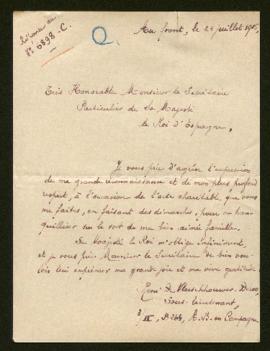 Au front, le 24 juillet 191
Nº 6898-C.
Très Honorable Monsieur le Secrétaire
Particulier de Sa Majesté
le Roi d'Espagne,
Je vous prie d'agréer l'expression
de ma grande reconnaissance et de mon plus profond
respect, à l'occasion de l'acte charitable, que vous
me faites, en faisant des démarches, pour me tran-
quilliser sur le sort de ma bien aimée famille.
Sa Majesté le Roi m'oblige infiniment,
et je vous prie Monsieur le Secrétaire de bien vou-
loir lui exprimer ma grande joie et ma vive gratitude.
Sous-lieutenant,
A. B. en Campagne